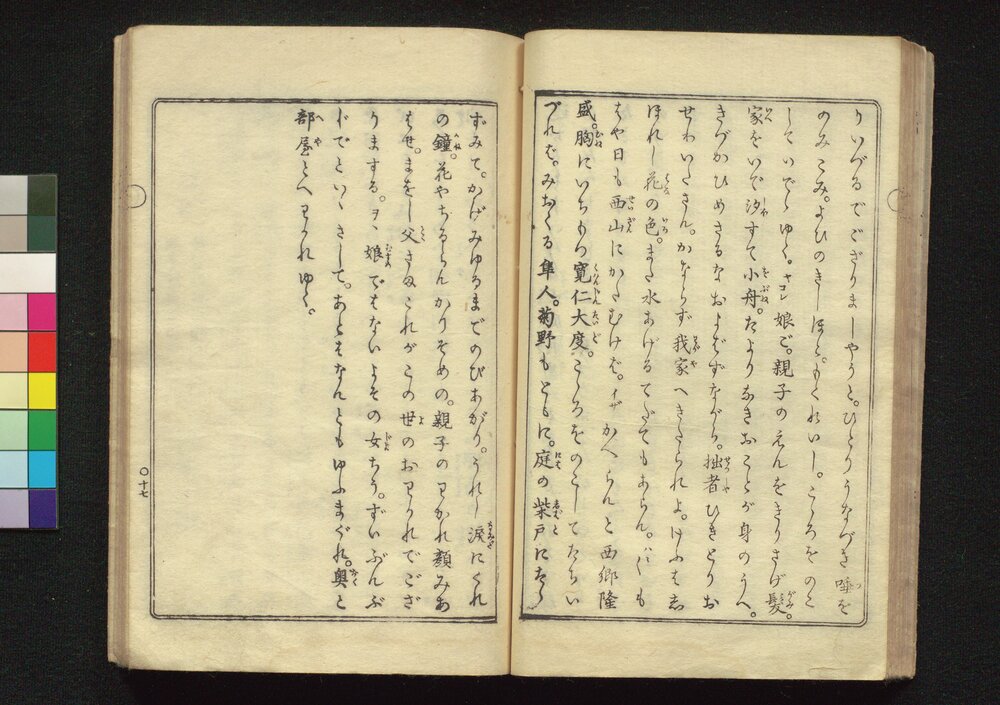 りいづるでござりましやうと。ひとりうなづき唾を
のみこみ。よひのきしほく。もくれいし。こゝろをのこ
していでゝゆく。ヤコレ娘ご。親子のえんをきりさげ髪。
家をいで汐すて小舟。たよりなきおことが身のうへ。
きづかひめさるなおよばずながら。拙者ひきとりお
せわいたさん。かならず我家へきたられよ。けふはお
ほれし花の色。また水あげるてだてもあらん。ハヽくも
はや日も西山にかたむけば。イザかへらんと西郷隆
盛。胸にいちもつ寛仁大度。こゝろをのこしてたちい
づれば。みおくる隼人。菊野もともに。庭の柴戸にたゝ
ずみて。かげみゆるまでのびあがり。うれし涙にくれ
の鐘。花やちるらんかりそめの。親子のわかれ顔みあ
はせ。まをし父さまこれがこの世のおわかれでござ
りまする。ヲヽ娘ではないよその女ちう。ずいぶんぶ
じでといゝさして。あとはなんともゆふまぐれ。奥と
部屋とへわかれゆく。
〇十七